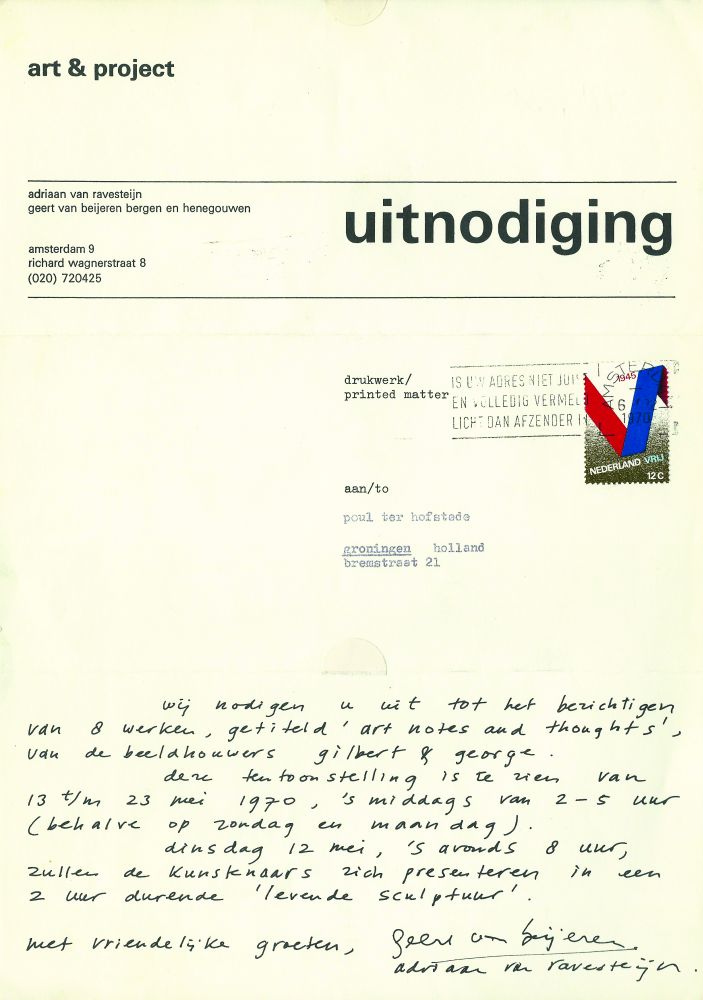 art & project
adriaan van ravesteijn
geert van beijeren bergen en henegouwen
uitnodiging
amsterdam 9
richard wagnerstraat 8
(020) 720425
drukwerk/
printed matter
IS UW ADRES NIET JUIS
EN VOLLEDIG VERMEL
LICHT DAN AFZENDER IN
AMSTERD
1945
6
1970
NEDERLAND VRIJ
12C
aan/to
poul ter hofstede
groningen holland
bremstraat 21
wij nodigen u uit tot het bezichtigen
van 8 werken, getiteld 'art notes and thoughts',
van de beeldhouwers gilbert & george.
deze tentoonstelling is te zien van
13 t/m 23 mei 1970, 's middags van 2-5 uur
(behalve op zondag en maandag).
dinsdag 12 mei, 's avonds 8 uur,
zullen de kunstenaars zich presenteren in een
2 uur durende 'levende sculptuur'.
met vriendelijke groeten, geert van beijeren
adriaan van ravesteijn.